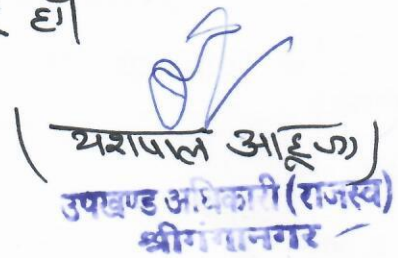 हो
(यशपाल आहूजा)
उपखण्ड अधिकारी (राजस्व)
श्रीगंगानगर